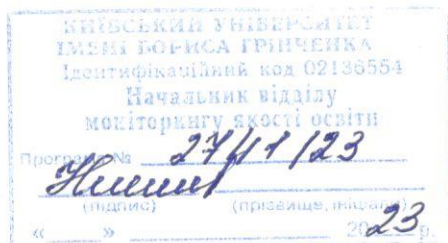 КИЇВСЬКИЙ УНІВЕРСИТЕТ
ІМЕНІ БОРИСА ГРІНЧЕНКА
Ідентифікаційний код 02136554
Начальник відділу
моніторингу якості освіти
Програма № 2741/23
(підпис) (прізвище, ініціали)
« » 2023 р.